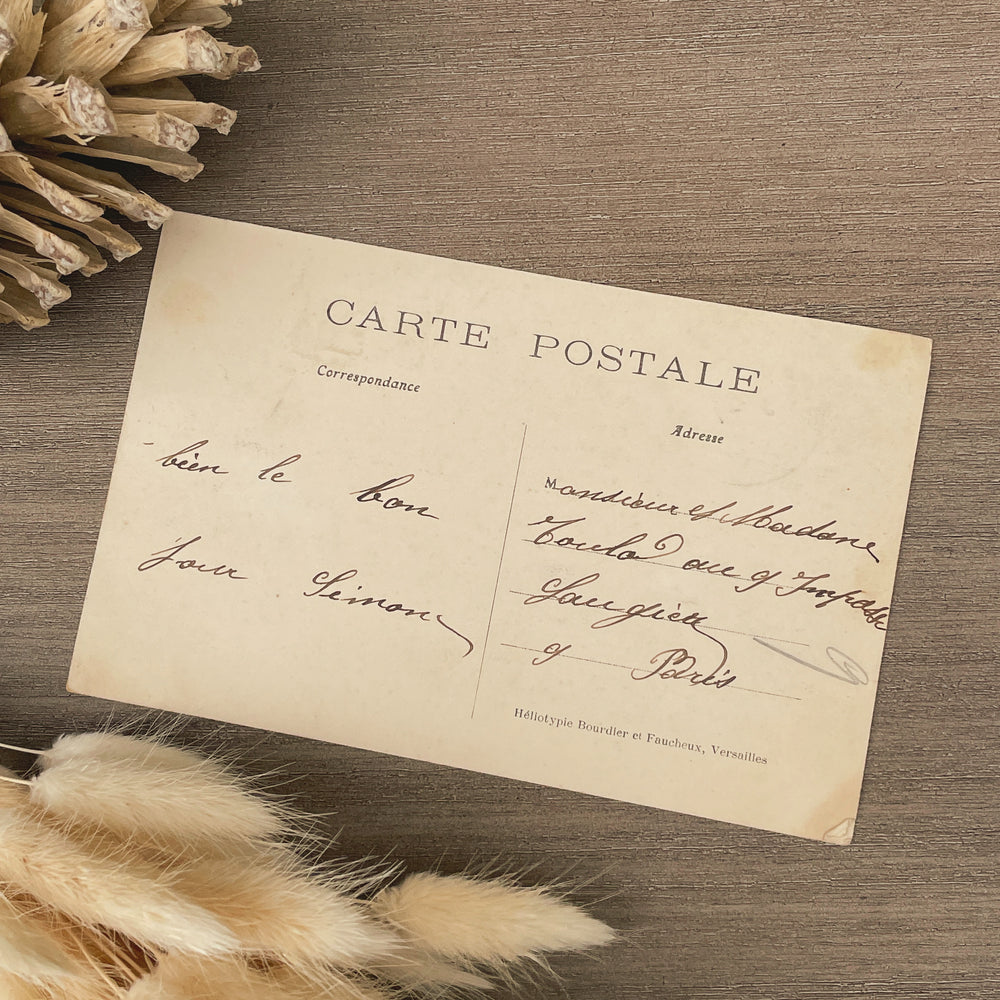 CARTE POSTALE
Correspondance
bien le bon
jour Simone
Adresse
Monsieur et Madame
au 9 Impasse
9 Paris
Héliotypie Bourdier et Faucheux, Versailles